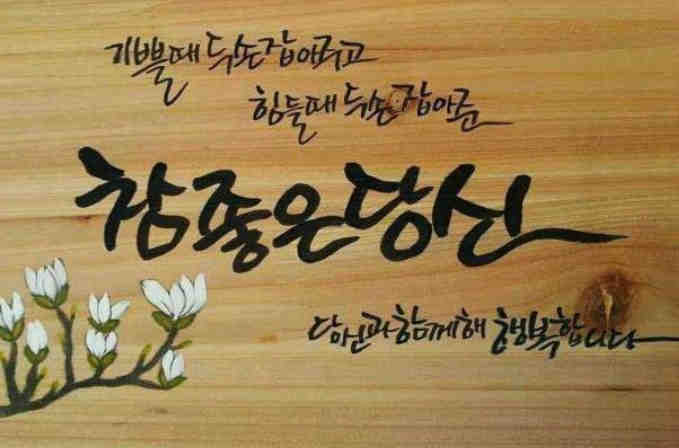 기쁠때 두손잡아주고
힘들때 두손잡아준
참 좋은 당신
당신과 함께해 행복합니다